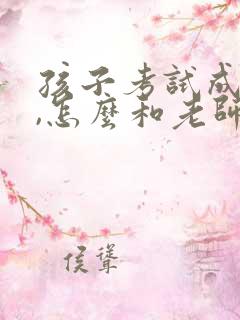 孩子考试成
,怎麼和老師
侯聳